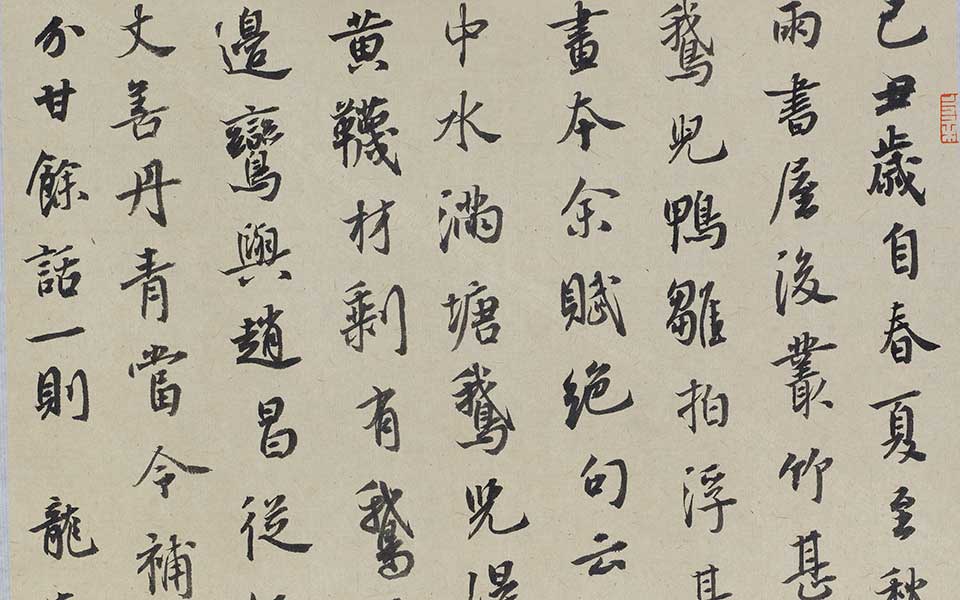 己丑歲自春夏至秋
雨書屋後叢竹甚
鵞兒鴨雛拍浮其
畫本余賦絶句云
中水滿塘鵞兒得
黄韈材剩有鵞
邊鸞與趙昌從
丈善丹青當令補
分甘餘話一則 龍